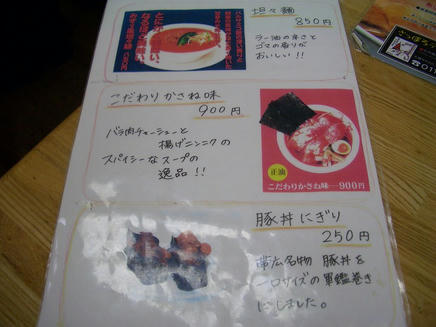 坦々麺
850円
ラー油の辛さと
ゴマの香りが
おいしい!!
こだわりかさね味
900円
バラ肉チャーシューと
揚げニンニクの
スパイシーなスープの
逸品!!
正油
こだわりかさね味 900円
豚丼にぎり
250円
帯広名物 豚丼を
一口サイズの軍艦巻き
にしました。